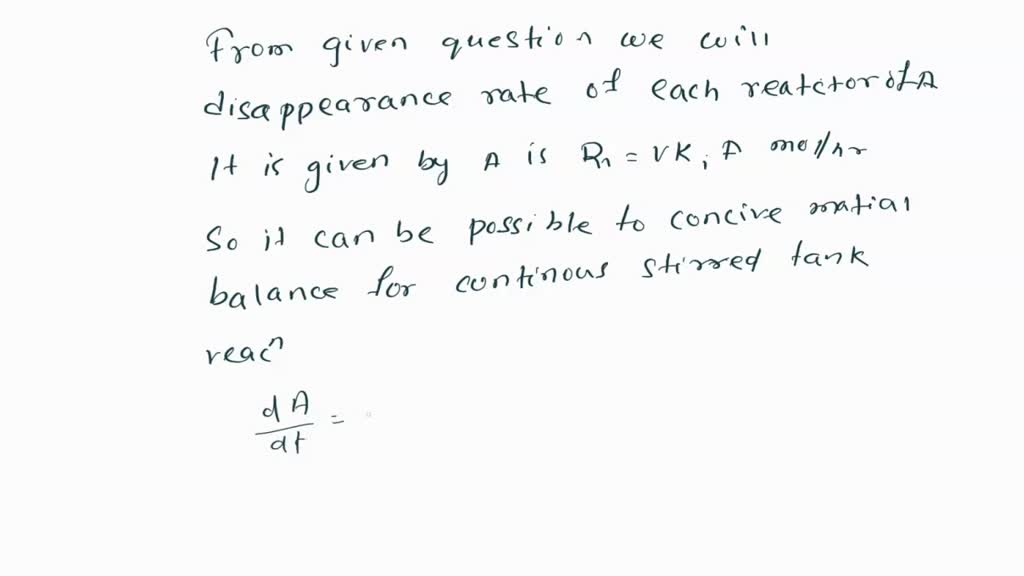 From given question we will
disappearance rate of each reatctor of A
It is given by A is R₁ = VK, A mol/hr
So it can be possible to concive matial
balance for continous stirred tank
reacⁿ
dA
dt =